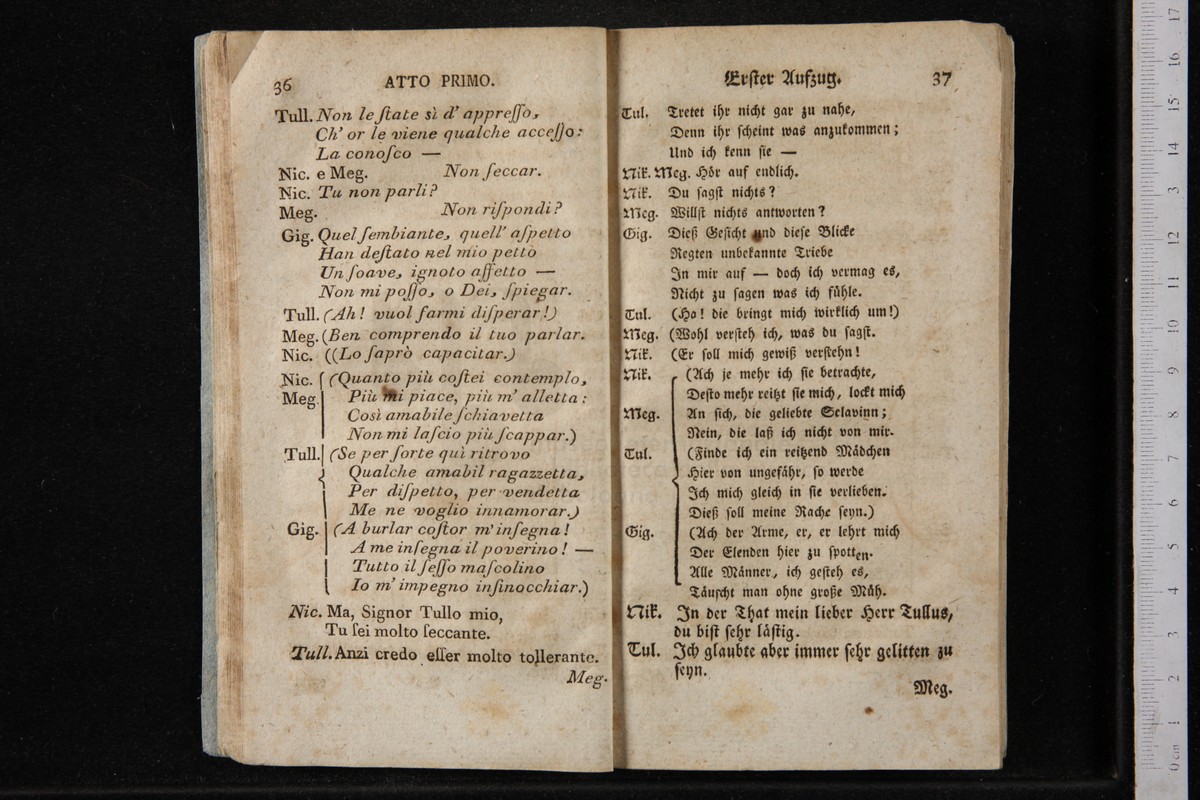 36 ATTO PRIMO.
Tull. Non leſtate sì d' appreſſo,
Ch' or le viene qualche acceſſo:
La conoſco —
Nic. e Meg. Non ſeccar.
Nic. Tu non parli?
Meg. Non riſpondi?
Gig. Quel ſembiante, quell' aſpetto
Han deſtato nel mio petto
Un ſoave, ignoto affetto —
Non mi poſſo, o Dei, ſpiegar.
Tull. (Ah! vuol farmi diſperar!)
Meg. (Ben comprendo il tuo parlar.
Nic. ((Lo ſaprò capacitar.)
Nic. (Quanto più coſtei contemplo,
Meg. Più mi piace, più m' alletta:
Così amabile ſchiavetta
Non mi laſcio più ſcappar.)
Tull. (Se per ſorte quì ritrovo
Qualche amabil ragazzetta,
Per diſpetto, per vendetta
Me ne voglio innamorar.)
Gig. (A burlar coſtor m' inſegna!
A me inſegna il poverino! —
Tutto il ſeſſo maſcolino
Io m' impegno infinocchiar.)
Nic. Ma, Signor Tullo mio,
Tu ſei molto ſeccante.
Tull. Anzi credo eſſer molto tollerante.
Meg.
Erſter Aufzug. 37
Tul. Tretet ihr nicht gar zu nahe,
Denn ihr ſcheint was anzukommen;
Und ich kenn ſie —
Nik. Meg. Hör auf endlich.
Nik. Du ſagſt nichts?
Meg. Willſt nichts antworten?
Gig. Dieß Geſicht und dieſe Blicke
Regten unbekannte Triebe
In mir auf — doch ich vermag es,
Nicht zu ſagen was ich fühle.
Tul. (Ha! die bringt mich wirklich um!)
Meg. (Wohl verſteh ich, was du ſagſt.
Nik. (Er ſoll mich gewiß verſtehn!
Nik. (Ach je mehr ich ſie betrachte,
Deſto mehr reitzt ſie mich, lockt mich
Meg. An ſich, die geliebte Sclavinn;
Nein, die laß ich nicht von mir.
Tul. (Finde ich ein reitzend Mädchen
Hier von ungefähr, ſo werde
Ich mich gleich in ſie verlieben.
Dieß ſoll meine Rache ſeyn.)
Gig. (Ach der Arme, er, er lehrt mich
Der Elenden hier zu ſpotten.
Alle Männer, ich geſteh es,
Täuſcht man ohne große Müh.
Nik. In der That mein lieber Herr Tullus,
du biſt ſehr läſtig.
Tul. Ich glaubte aber immer ſehr gelitten zu
ſeyn.
Meg.
0 cm 1 2 3 4 5 6 7 8 9 10 11 12 13 14 15 16 17